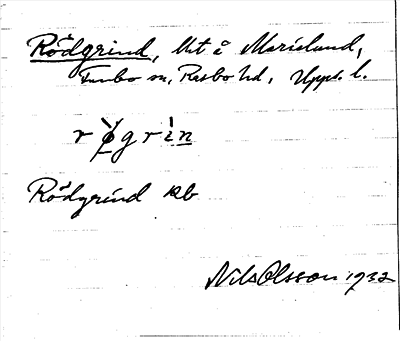 Rödgrind, Ut å Marielund,
Funbo sn, Rasbo hd, Upps. l.
rø̀grìn
Rödgrind Kb
Nils Olsson 1932